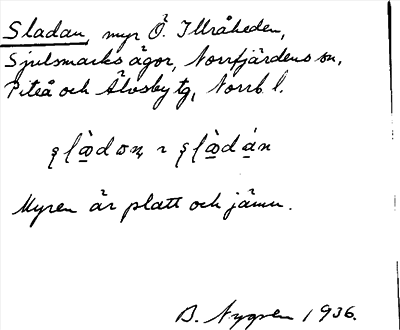 Sladan, myr Ö. Illråheden,
Sjulsmarks ägor, Norrfjärdens sn,
Piteå och Älvsby tg, Norrb. l.
Myren är platt och jämn.
B. Nygren 1936.